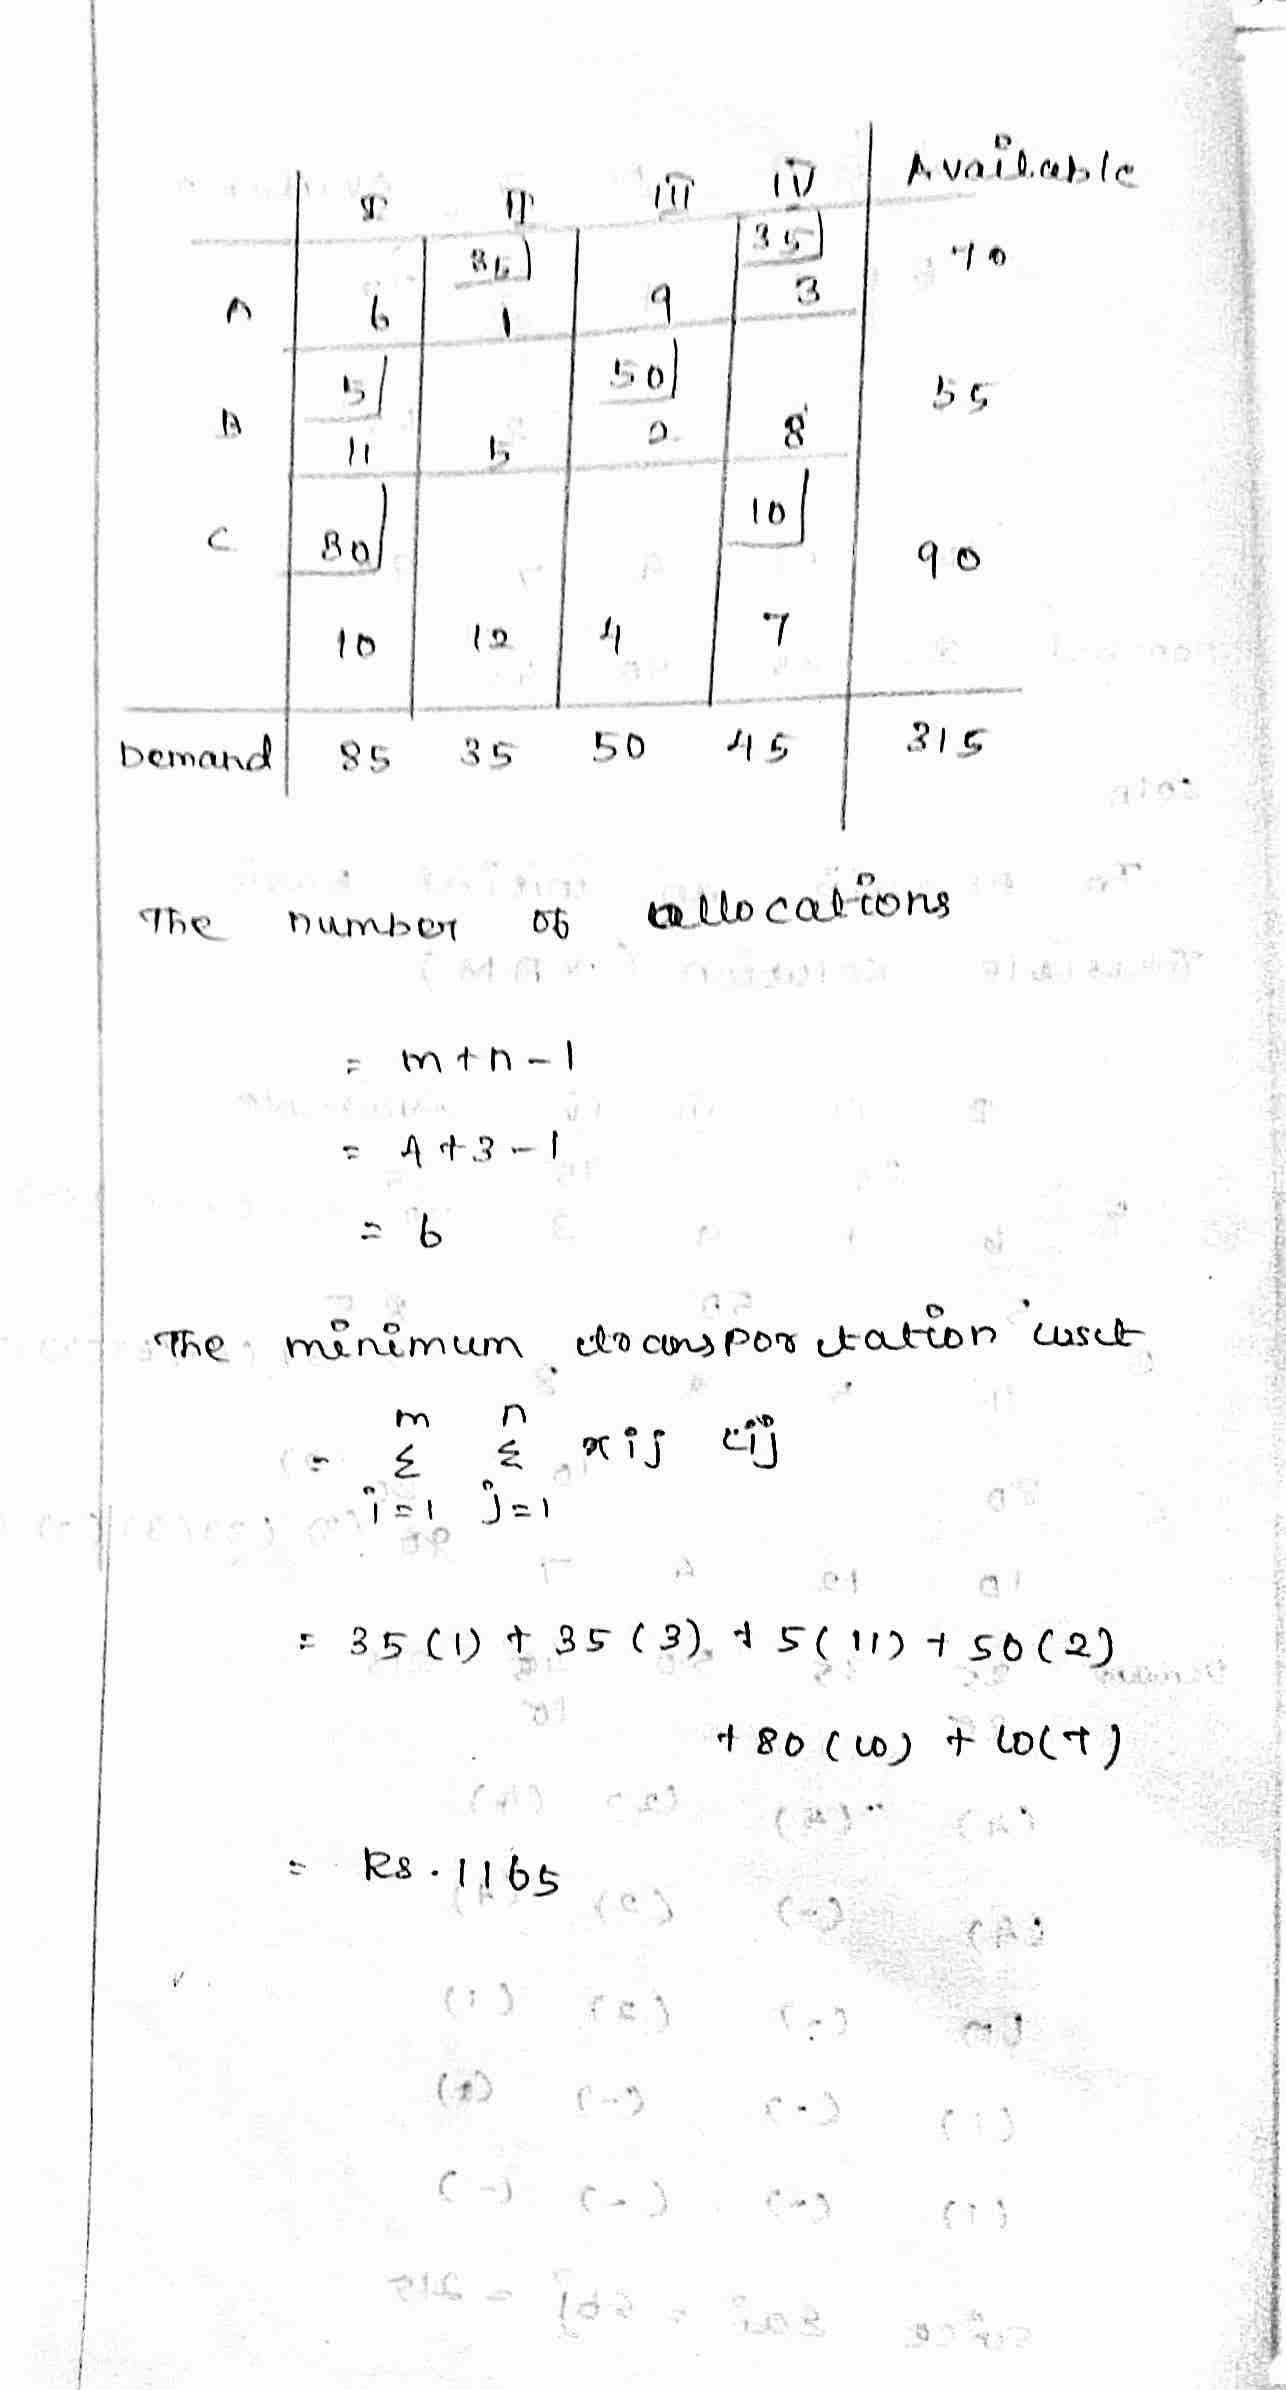 I II III IV Available
35 35 70
A 6 1 9 3
5 50 55
B 11 5 2 8
C 80 10 90
10 12 4 7
Demand 85 35 50 45 315
The number of allocations
= m+n-1
= 4+3-1
= 6
The minimum transportation cost
m n
= Σ Σ xij cij
i=1 j=1
= 35(1) + 35(3) + 5(11) + 50(2)
+ 80(10) + 10(7)
= Rs. 1165